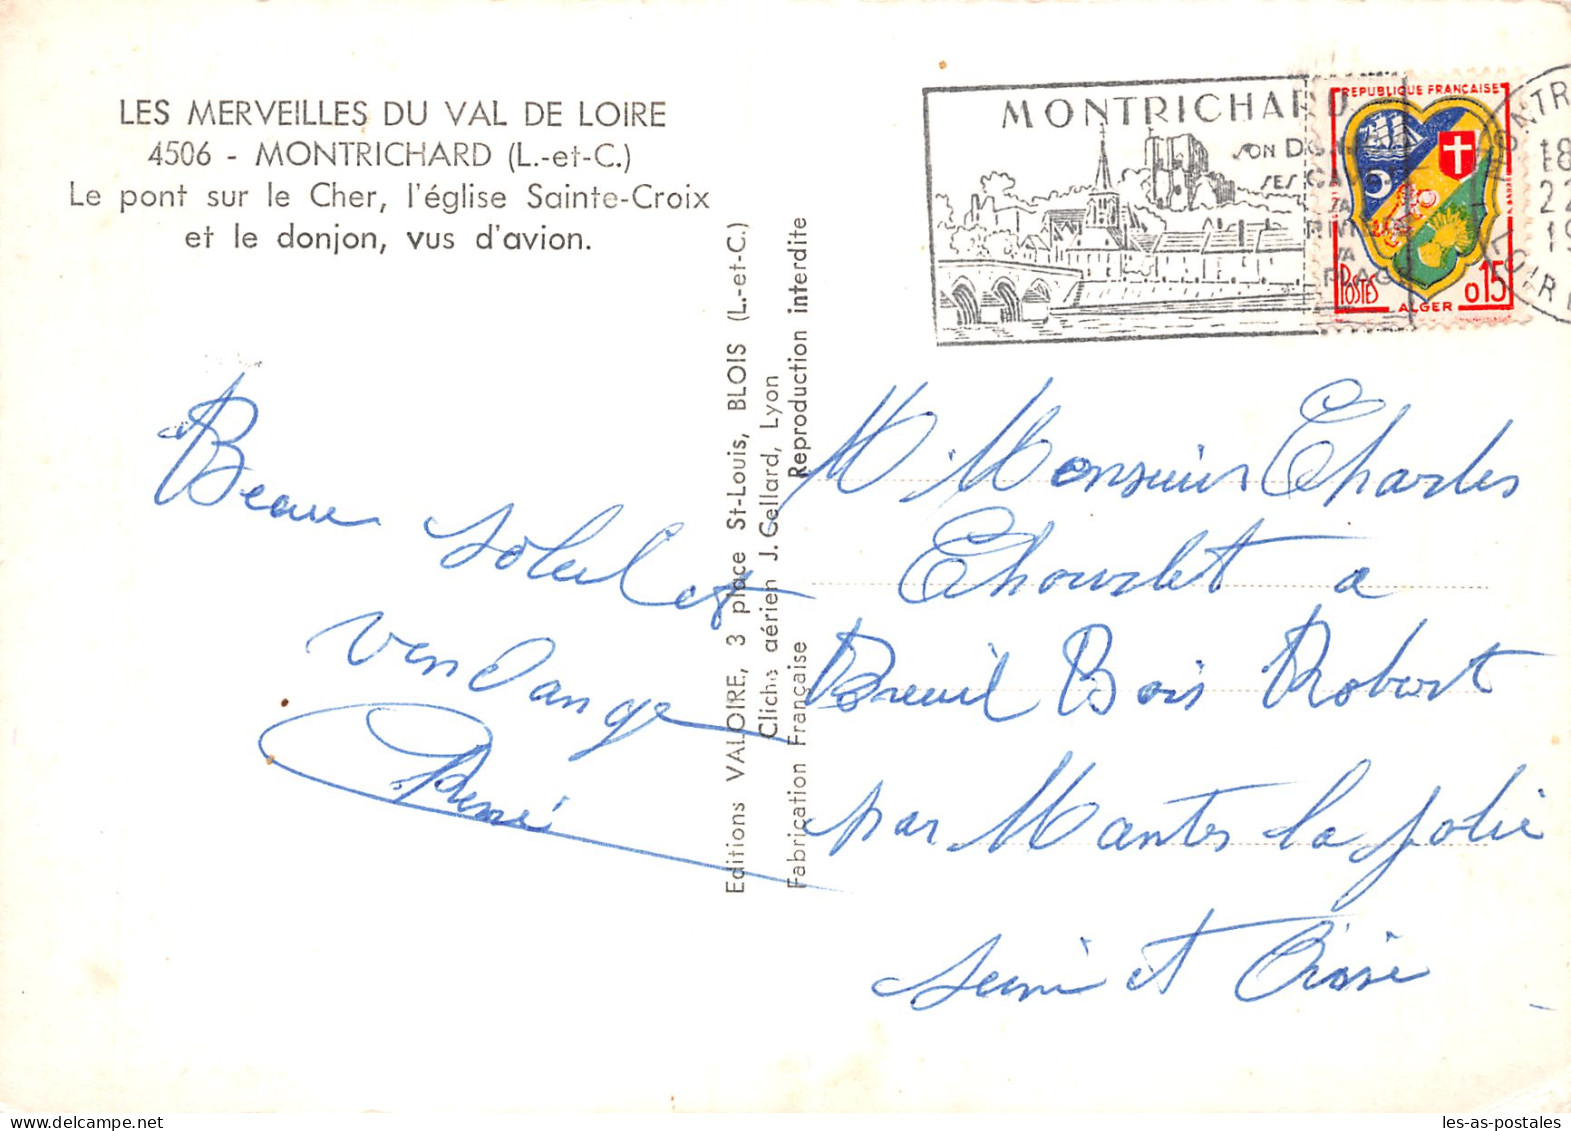 LES MERVEILLES DU VAL DE LOIRE
4506 - MONTRICHARD (L.-et-C.)
Le pont sur le Cher, l'église Sainte-Croix
et le donjon, vus d'avion.
Beau soleil et
vendange
René
Editions VALOIRE, 3 place St-Louis, BLOIS (L.-et-C.)
Cliché aérien J. Cellard, Lyon
Fabrication Française
Reproduction interdite
MONTRICHARD
SON
SES
SA
SA
PLAGE
REPUBLIQUE FRANÇAISE
POSTES
0,15
ALGER
18
22
19
M Monsieur Charles
a
Breuil Bois Robert
par Mantes la jolie
Seine et Oise
les-as-postales